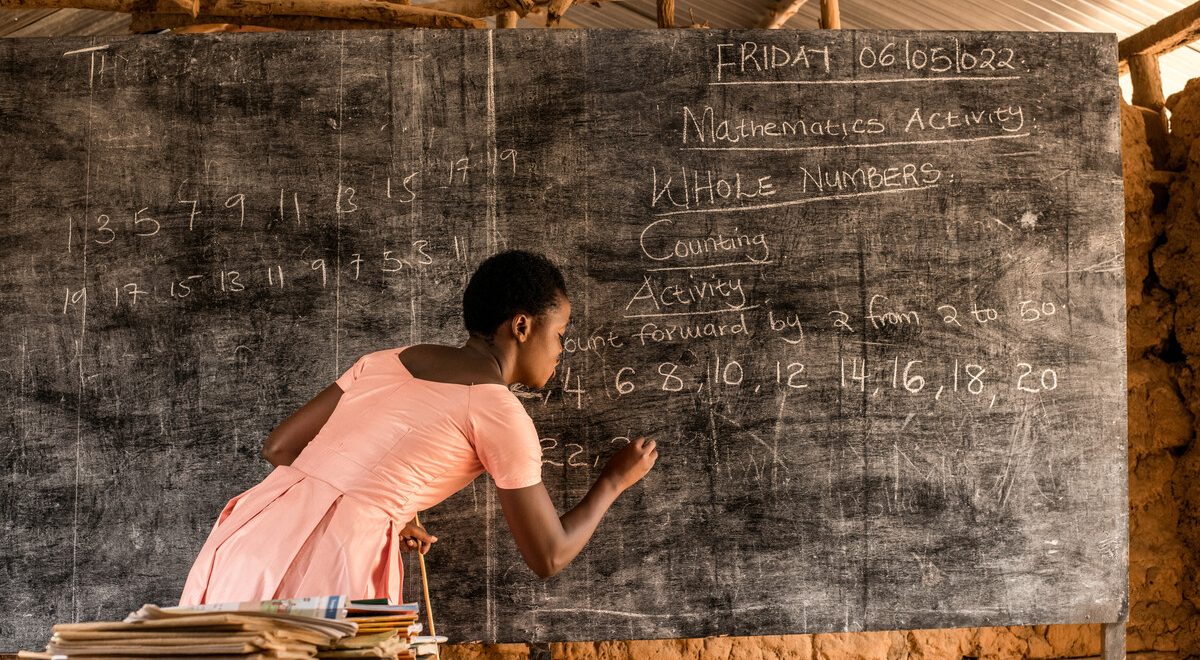 1 3 5 7 9 11 13 15 17 19
19 17 15 13 11 9 7 5 3 11
FRIDAY 06/05/022.
Mathematics Activity.
WHOLE NUMBERS.
Counting
Activity.
forward by 2 from 2 to 50.
, 4 6 8, 10, 12 14, 16, 18, 20
22,